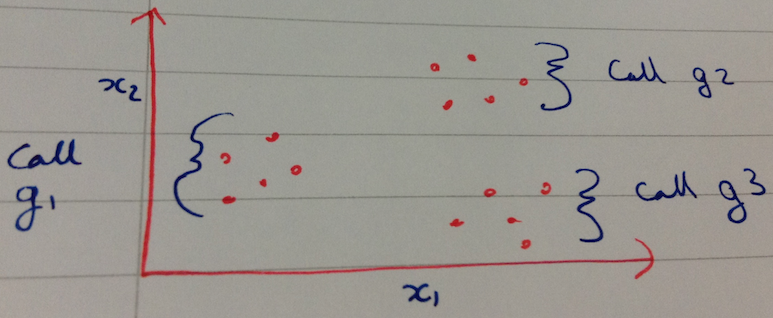 x2
Call g2
Call
g1
Call g3
x1